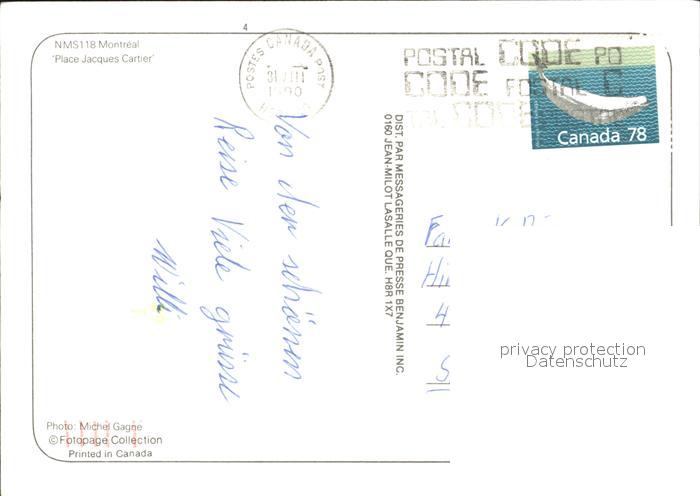 4
NMS118 Montréal
'Place Jacques Cartier'
POSTES CANADA POST
1990
POSTAL CODE PO
CODE POSTAL C
CODE
Canada 78
DIST. PAR MESSAGERIES DE PRESSE BENJAMIN INC.
0160 JEAN-MILOT LASALLE QUE. H8R 1X7
Von der schönen
Reise Viele grüsse
Willi
Fa
4
S
privacy protection
Datenschutz
Photo: Michel Gagné
©Fotopage Collection
Printed in Canada